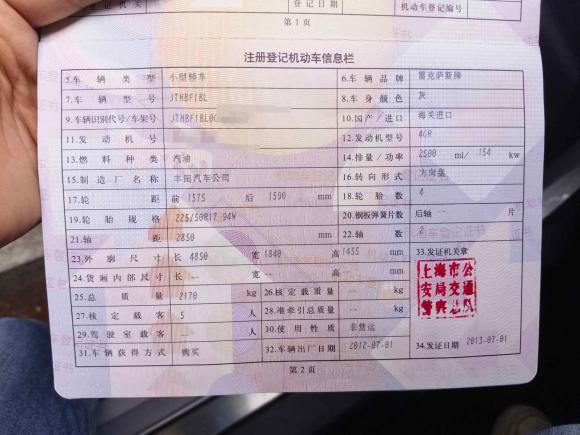 登记日期
机动车登记编号
第 1 页
注册登记机动车信息栏
5.车辆类型 小型轿车 6.车辆品牌 雷克萨斯牌
7.车辆型号 JTHBF1BL 8.车身颜色 灰
9.车辆识别代号/车架号 JTHBF1BL 10.国产/进口 海关进口
11.发动机号 12.发动机型号 4GR
13.燃料种类 汽油 14.排量/功率 2500 ml/ 154 kw
15.制造厂名称 丰田汽车公司 16.转向形式 方向盘
17.轮距 前 1575 后 1590 mm 18.轮胎数 4
19.轮胎规格 225/50R17 94W 20.钢板弹簧片数 后轴 -- 片
21.轴距 2850 mm 22.轴数 2
23.外廓尺寸 长 4850 宽 1840 高 1455 mm 33.发证机关章
24.货厢内部尺寸 长 -- 宽 -- 高 -- mm
25.总质量 2170 kg 26.核定载质量 -- kg
27.核定载客 5 人 28.准牵引总质量 -- kg
29.驾驶室载客 -- 人 30.使用性质 非营运
31.车辆获得方式 购买 32.车辆出厂日期 2012-07-01 34.发证日期 2013-07-01
上海市公
安局交通
警察总队
第 2 页